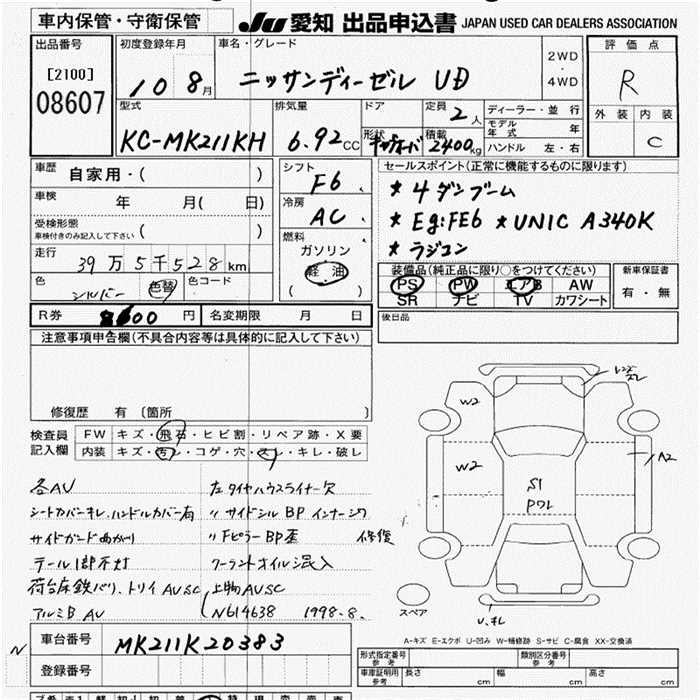 車内保管・守衛保管
JU 愛知 出品申込書 JAPAN USED CAR DEALERS ASSOCIATION
出品番号
[2100]
08607
初度登録年月
10 8月
車名・グレード
ニッサンディーゼル UD
2WD
・
4WD
評価点
R
外装 内装
C
型式
KC-MK211KH
排気量
6.92cc
ドア
形状
定員
2人
積載
2400kg
ディーラー・並行
モデル年式 年
ハンドル 左・右
車歴
自家用・( )
車検
年 月( 日)
受検形態
車検付きのみ記入して下さい ( )
走行
39万5千528km
色
シルバー
色替
色コード
シフト
F6
冷房
AC
燃料
ガソリン
軽油
( )
セールスポイント(正常に機能するものに限ります)
* 4ダンブーム
* Eg:FE6 * UNIC A340K
* ラジコン
装備品(純正品に限り○をつけてください)
PS PW エアB AW
SR ナビ TV カワシート
新車保証書
有・無
R券
円
名変期限 月 日
後日品
注意事項申告欄(不具合内容等は具体的に記入して下さい)
修復歴 有 〔箇所 〕
検査員
記入欄
FW キズ・飛石・ヒビ割・リペア跡・X要
内装 キズ・汚レ・コゲ・穴・スレ・キレ・破レ
各AU
シートカバーキレ、ハンドルカバー有
サイドガード曲がり
テール1部不灯
荷台床鉄バリ、トリイAUSC
アルミB AU
左タイヤハウスライナー欠
〃サイドシルBP インナーシワ
〃FピラーBP歪 修復
クーラントオイル混入
上物AUSC
N614638 1998-8.
W2
W2
S1
Pワレ
A2
U、キレ
スペア
A-キズ E-エクボ U-凹み W-補修跡 S-サビ C-腐食 XX-交換済
N
車台番号
MK211K20383
登録番号
形式指定番号
参考
類別区分番号
参考
車庫証明用
参考
長さ cm 幅 cm 高さ cm